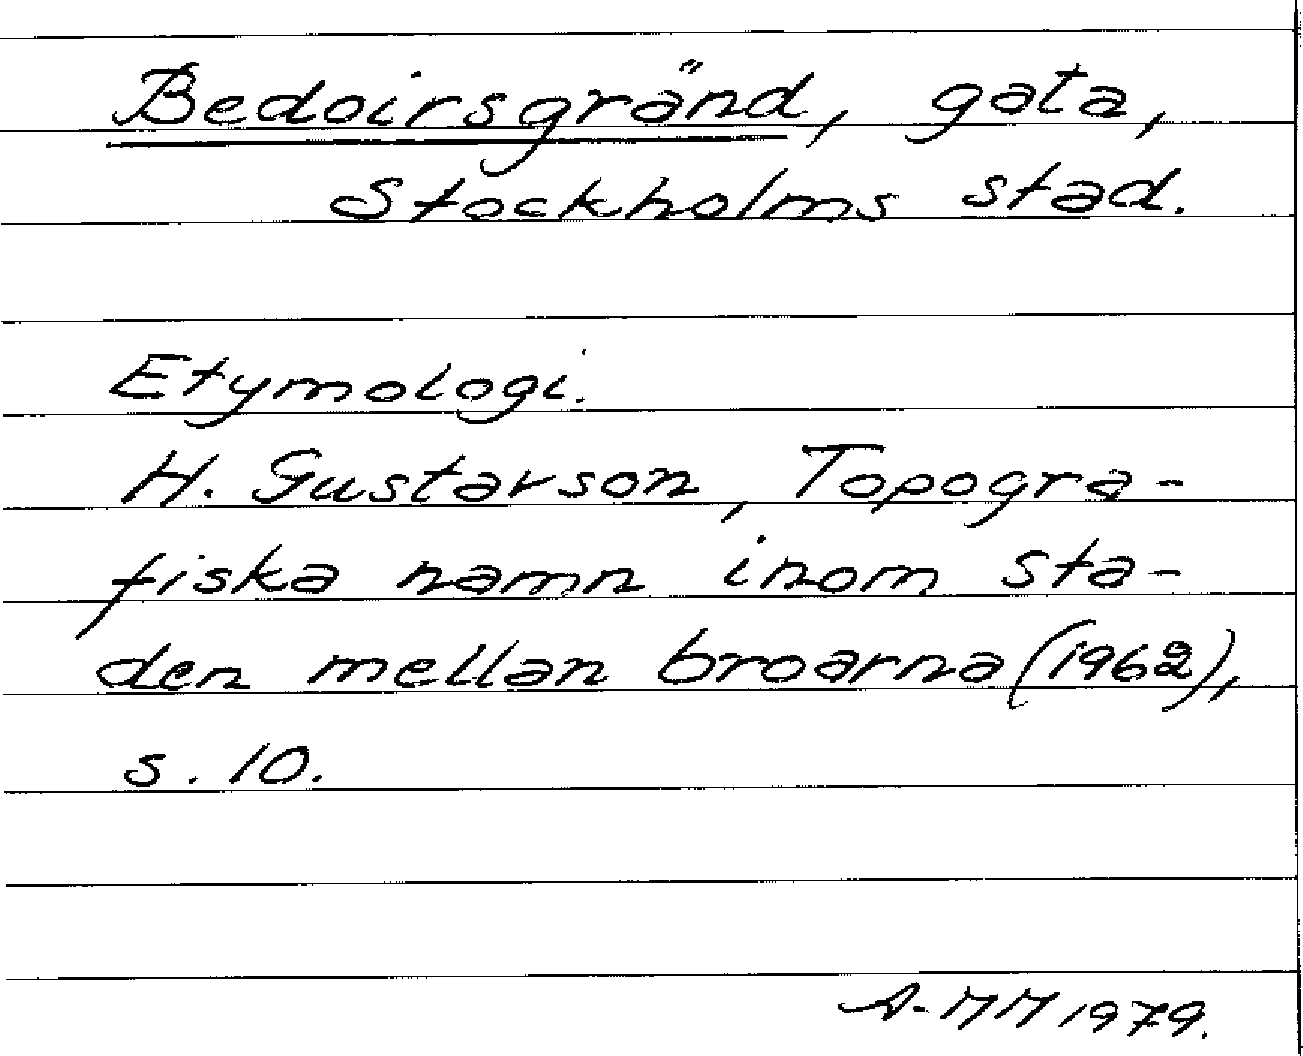 Bedoirsgränd, gata,
Stockholms stad.
Etymologi.
H. Gustavson, Topogra-
fiska namn inom sta-
den mellan broarna (1962),
s. 10.
A-MM 1979.